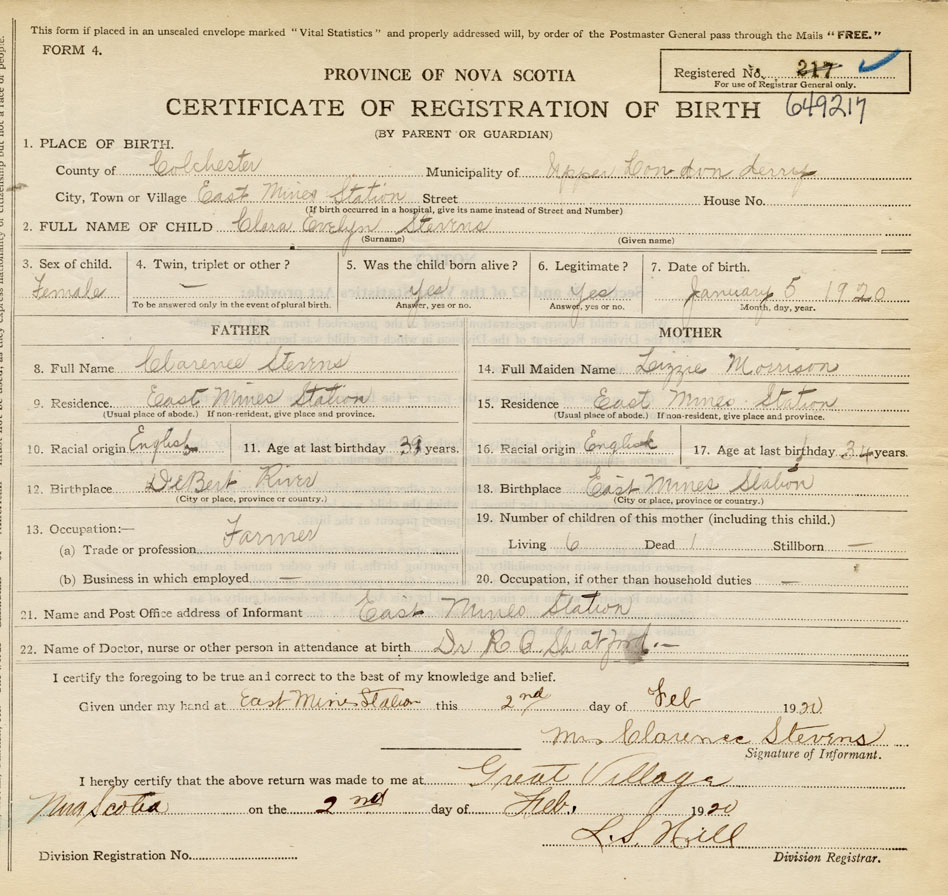 This form if placed in an unsealed envelope marked "Vital Statistics" and properly addressed will, by order of the Postmaster General pass through the Mails "FREE."
FORM 4.
Registered No. 217
For use of Registrar General only.
PROVINCE OF NOVA SCOTIA
CERTIFICATE OF REGISTRATION OF BIRTH 649217
(BY PARENT OR GUARDIAN)
1. PLACE OF BIRTH.
County of Colchester Municipality of Upper Londonderry
City, Town or Village East Mines Station Street House No.
(If birth occurred in a hospital, give its name instead of Street and Number)
2. FULL NAME OF CHILD Clara Evelyn Stevens
(Surname) (Given name)
3. Sex of child. 4. Twin, triplet or other? 5. Was the child born alive? 6. Legitimate? 7. Date of birth.
Female — Yes Yes January 5 1920
To be answered only in the event of plural birth. Answer, yes or no. Answer, yes or no. Month, day, year.
FATHER MOTHER
8. Full Name Clarence Stevens 14. Full Maiden Name Lizzie Morrison
9. Residence. East Mines Station 15. Residence East Mines Station
(Usual place of abode.) If non-resident, give place and province. (Usual place of abode.) If non-resident, give place and province.
10. Racial origin English 11. Age at last birthday 39 years. 16. Racial origin English 17. Age at last birthday 34 years.
12. Birthplace DeBert River 18. Birthplace East Mines Station
(City or place, province or country.) (City or place, province or country.)
13. Occupation:— Farmer 19. Number of children of this mother (including this child.)
(a) Trade or profession Living 6 Dead 1 Stillborn —
(b) Business in which employed — 20. Occupation, if other than household duties —
21. Name and Post Office address of Informant East Mines Station
22. Name of Doctor, nurse or other person in attendance at birth Dr R A Shatford.—
I certify the foregoing to be true and correct to the best of my knowledge and belief.
Given under my hand at East Mines Station this 2nd day of Feb 1920
Mrs Clarence Stevens
Signature of Informant.
I hereby certify that the above return was made to me at Great Village
Nova Scotia on the 2nd day of Feb. 1920
L.S. Hill
Division Registration No. Division Registrar.